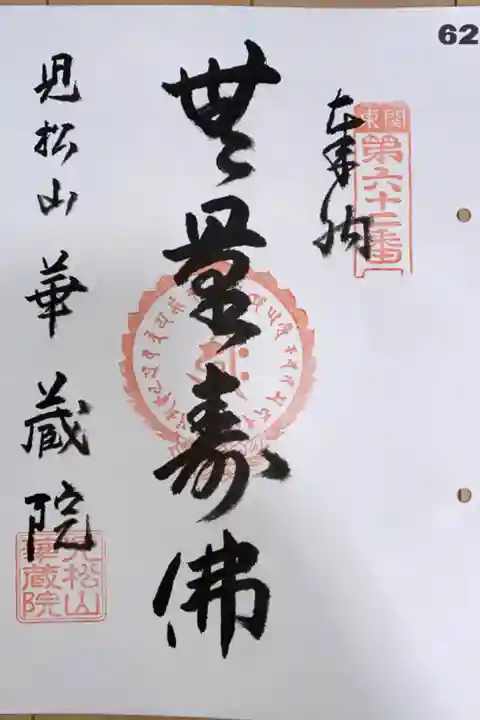 62
関東
第六十二番
奉納
無量寿佛
見松山 華蔵院
見松山
華蔵院